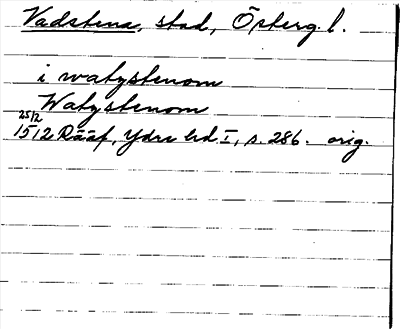 Vadstena, stad, Österg. l.
i watzstenom
Watzstenom
25/12
1512 Rääf, Ydre hd I, s. 286. orig.